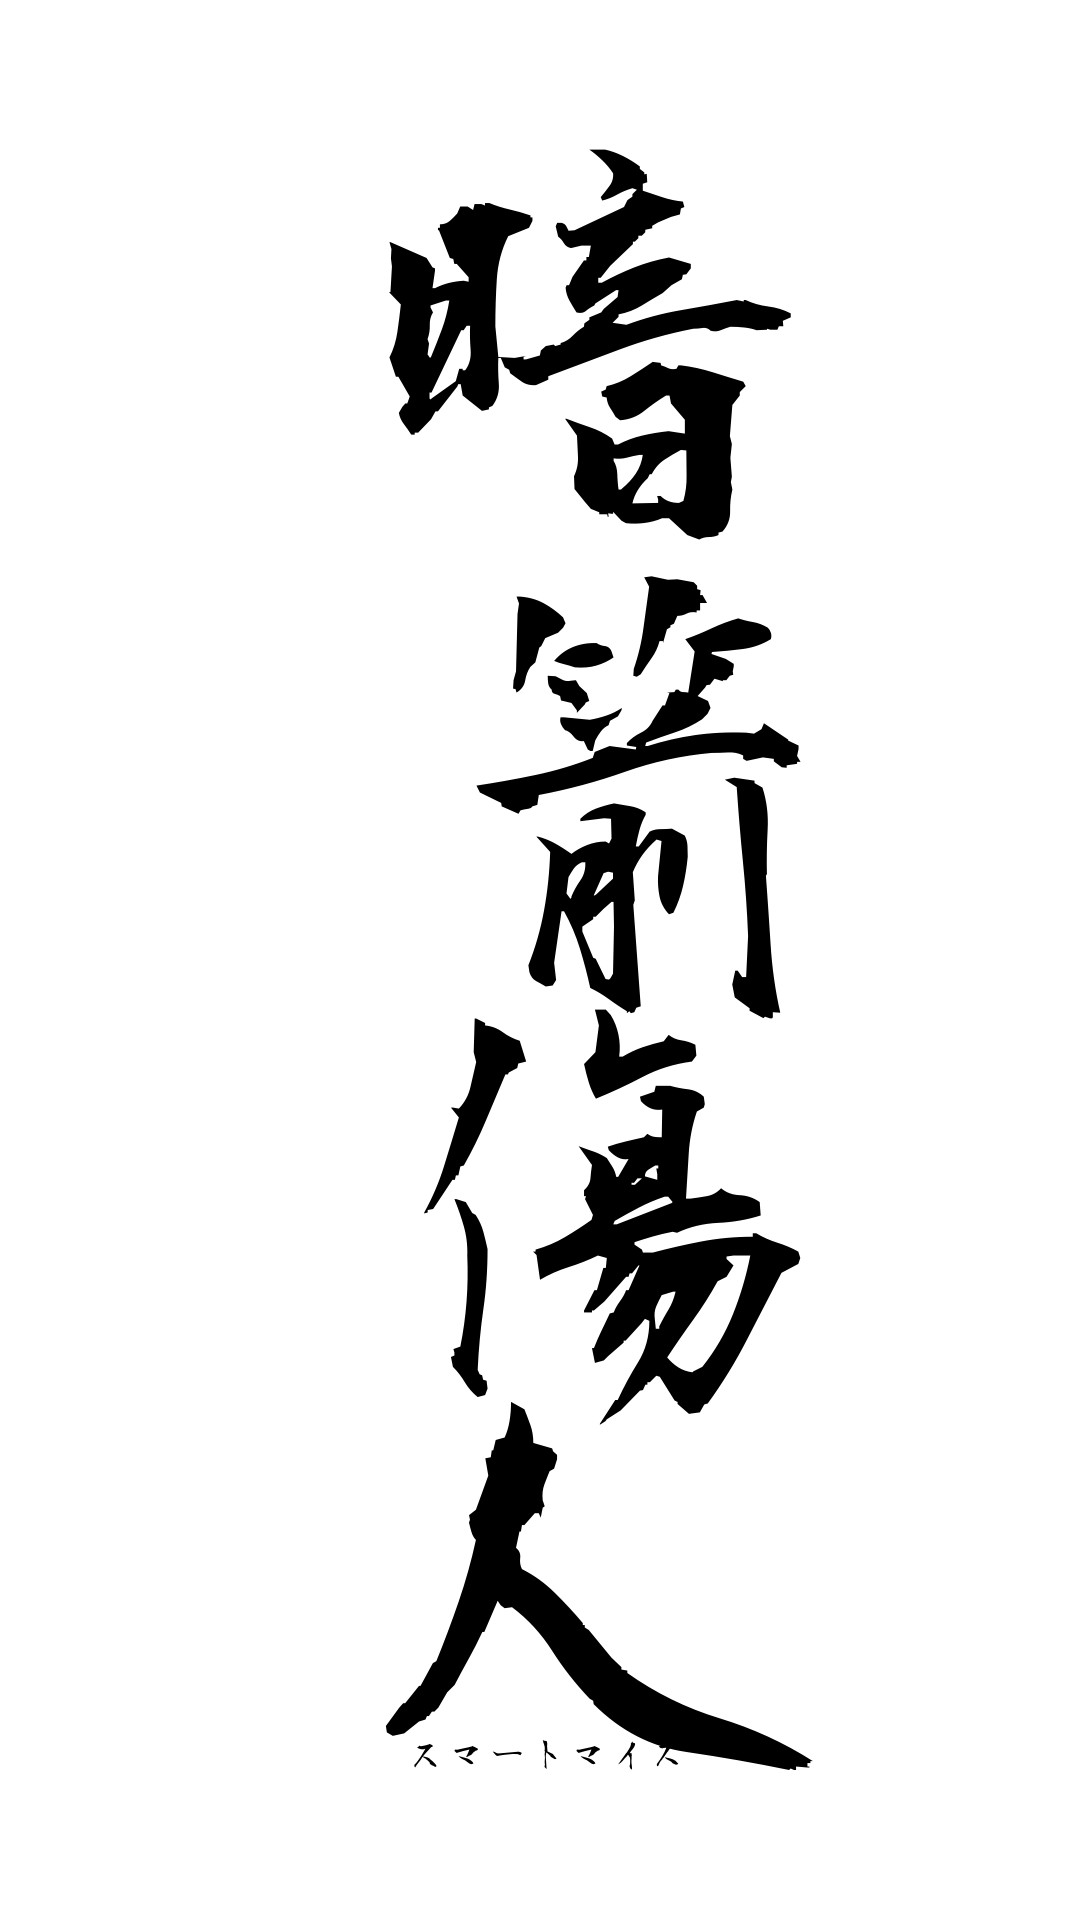 暗箭傷人
スマートマイス